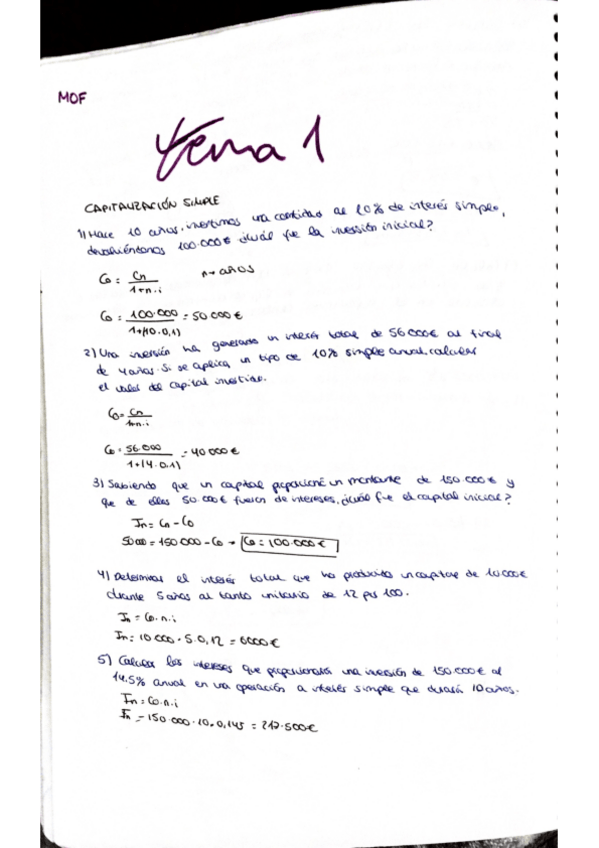 MOF
Tema 1
CAPITALIZACIÓN SIMPLE
1) Hace 10 años, invertimos una cantidad al 10% de interés simple,
devolviéndonos 100.000€ ¿cuál fue la inversión inicial?
Co = Cn / 1+n.i n → años
Co = 100.000 / 1+(10.0,1) = 50000€
2) Una inversión ha generado un interés total de 56000€ al final
de 4 años. Si se aplica un tipo de 10% simple anual, calcular
el valor del capital invertido.
Co = Cn / 1+n.i
Co = 56.000 / 1+(4.0,1) = 40000€
3) Sabiendo que un capital proporcionó un montante de 150.000€ y
que de ellos 50.000€ fueron de intereses, ¿cuál fue el capital inicial?
In = Cn - Co
50000 = 150000 - Co → Co = 100.000€
4) Determinar el interés total que ha producido un capital de 10000€
durante 5 años al tanto unitario de 12 por 100.
In = Co.n.i
In = 10000.5.0,12 = 6000€
5) Calcular los intereses que proporcionará una inversión de 150.000€ al
14.5% anual en una operación a interés simple que durará 10 años.
In = Co.n.i
In = 150.000.10.0,145 = 217.500€